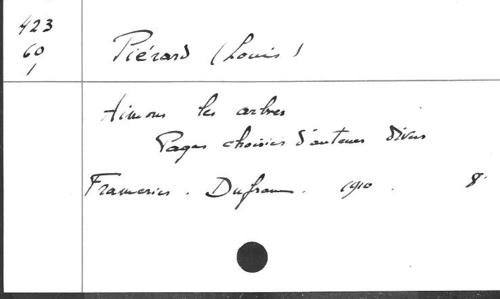 423
60
1
Piérard (Louis)
Aimons les arbres
Pages choisies d'auteurs divers
Frameries. Dufrane. 1910. 8°